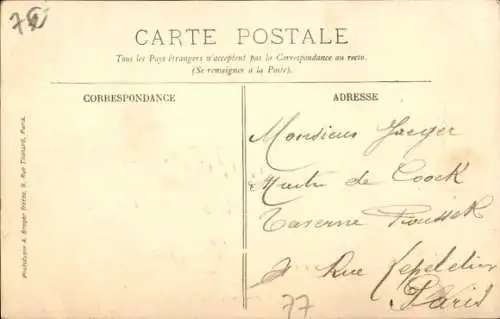 CARTE POSTALE
Tous les Pays étrangers n'acceptent pas la Correspondance au recto.
(Se renseigner à la Poste).
CORRESPONDANCE
ADRESSE
Phototypie A. Breger frères, 9, Rue Thénard, Paris.
Monsieur Jaeger
de Coock
Taverne Pousset
Rue Lepeletier
Paris
77